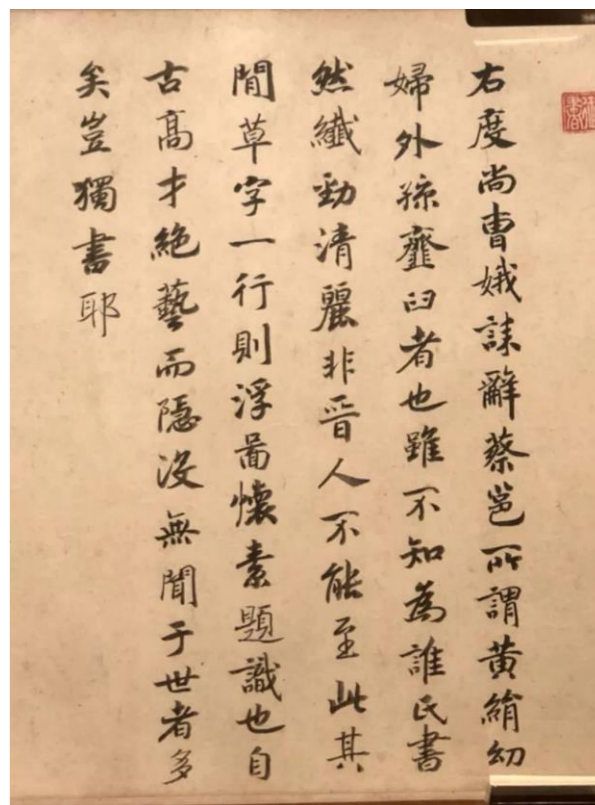 右度尚曹娥誄辭蔡邕所謂黃絹幼
婦外孫虀臼者也雖不知為誰氏書
然纖勁清麗非晉人不能至此其
間草字一行則浮啚懷素題識也自
古高才絕藝而隱沒無聞于世者多
矣豈獨書耶